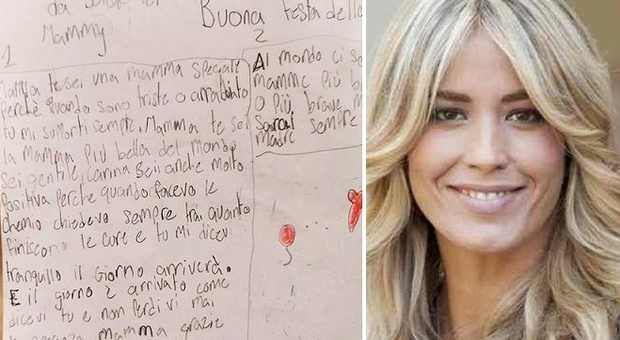 da
Mammy
Buona festa delle
1
Mamma te sei una mamma speciale
perchè quando sono triste o arrabbiato
tu mi supporti sempre. Mamma te sei
la mamma più bella del mondo
sei gentile, carina sei anche molto
positiva perche quando facevo le
chemio chiedevo sempre tra quanto
finiscono le cure e tu mi dicevi
tranquillo il giorno arriverà.
E il giorno è arrivato come
dicevi tu e non perdi vi mai
la speranza mamma grazie
2
Al mondo ci s
mamme più b
o più brave m
sarai sempre
madre